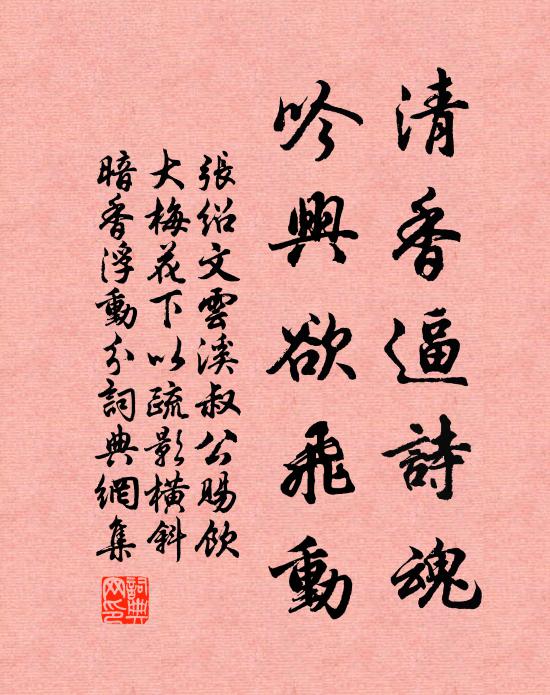 清香逼詩魂
吟興欲飛動
張紹文雲溪叔公賜飲
大梅花下以疏影橫斜
暗香浮動分詞典網集
詞典網印